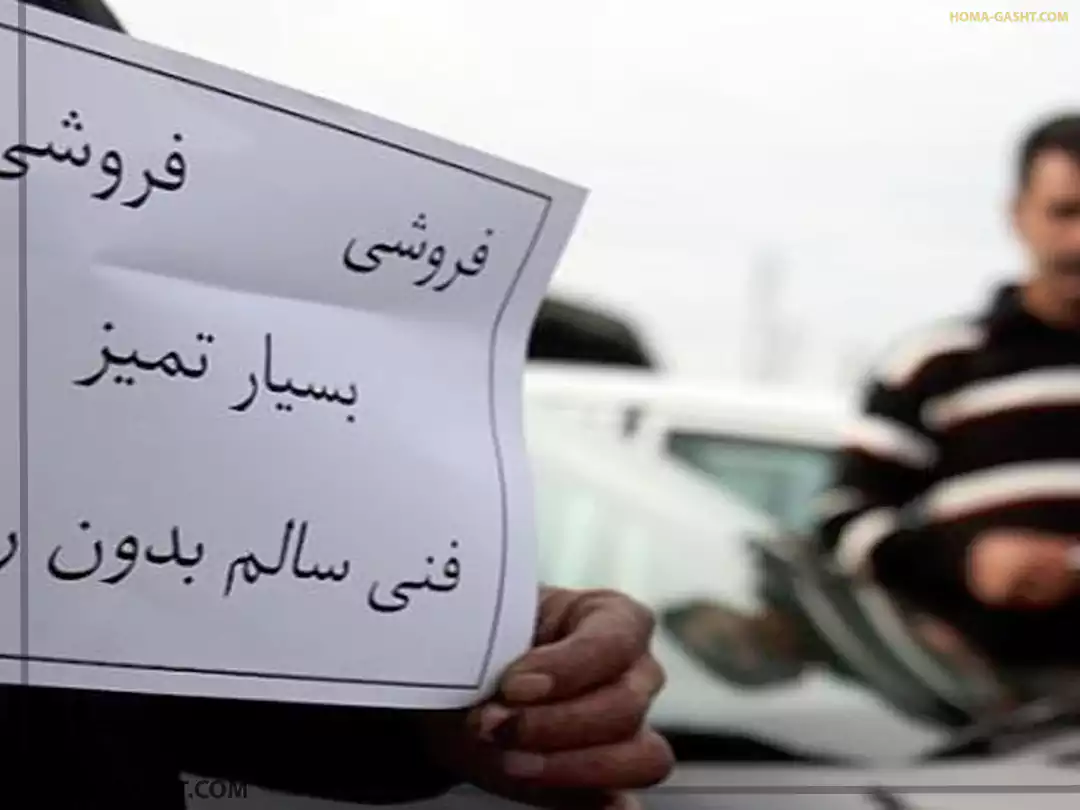 HOMA-GASHT.COM
فروشی فروشی
بسیار تمیز
فنی سالم بدون